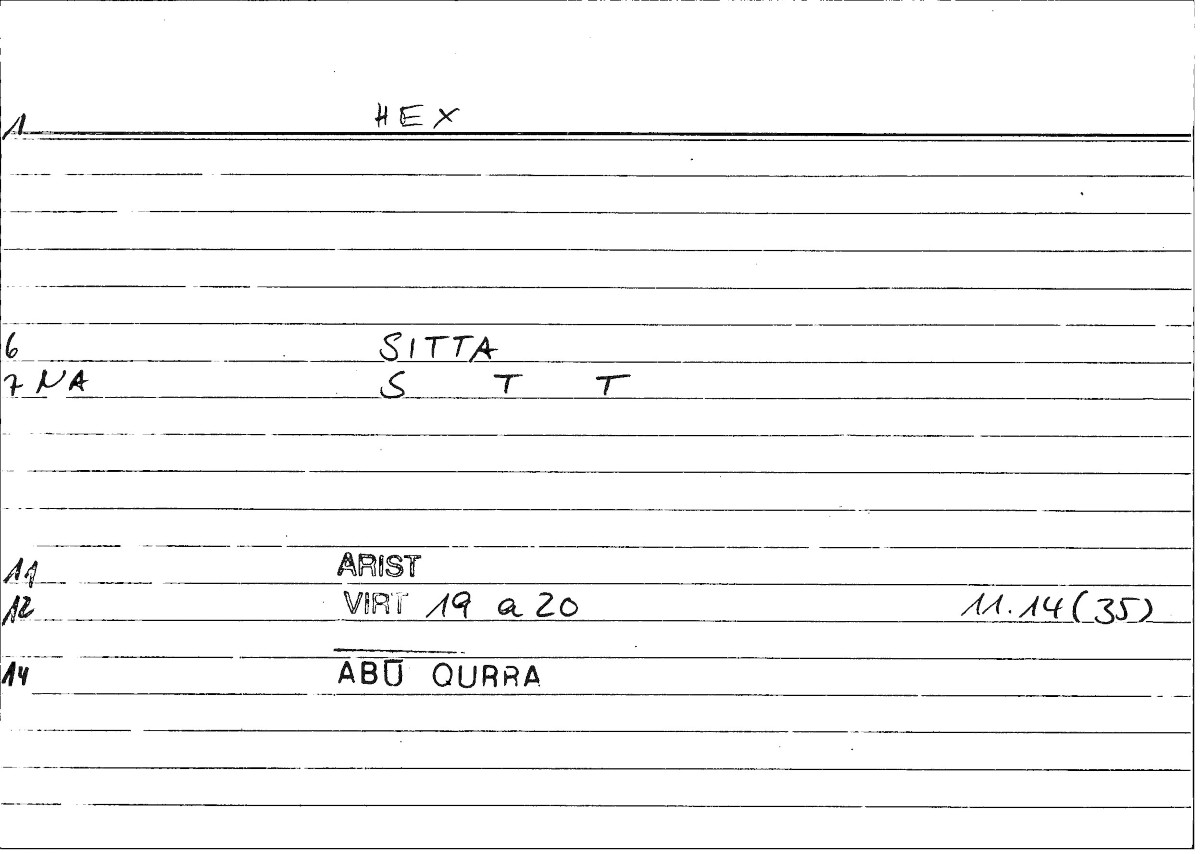 1 HEX
6 SITTA
7 NA S T T
11 ARIST
12 VIRT 19 a 20 11.14(35)
14 ABŪ QURRA